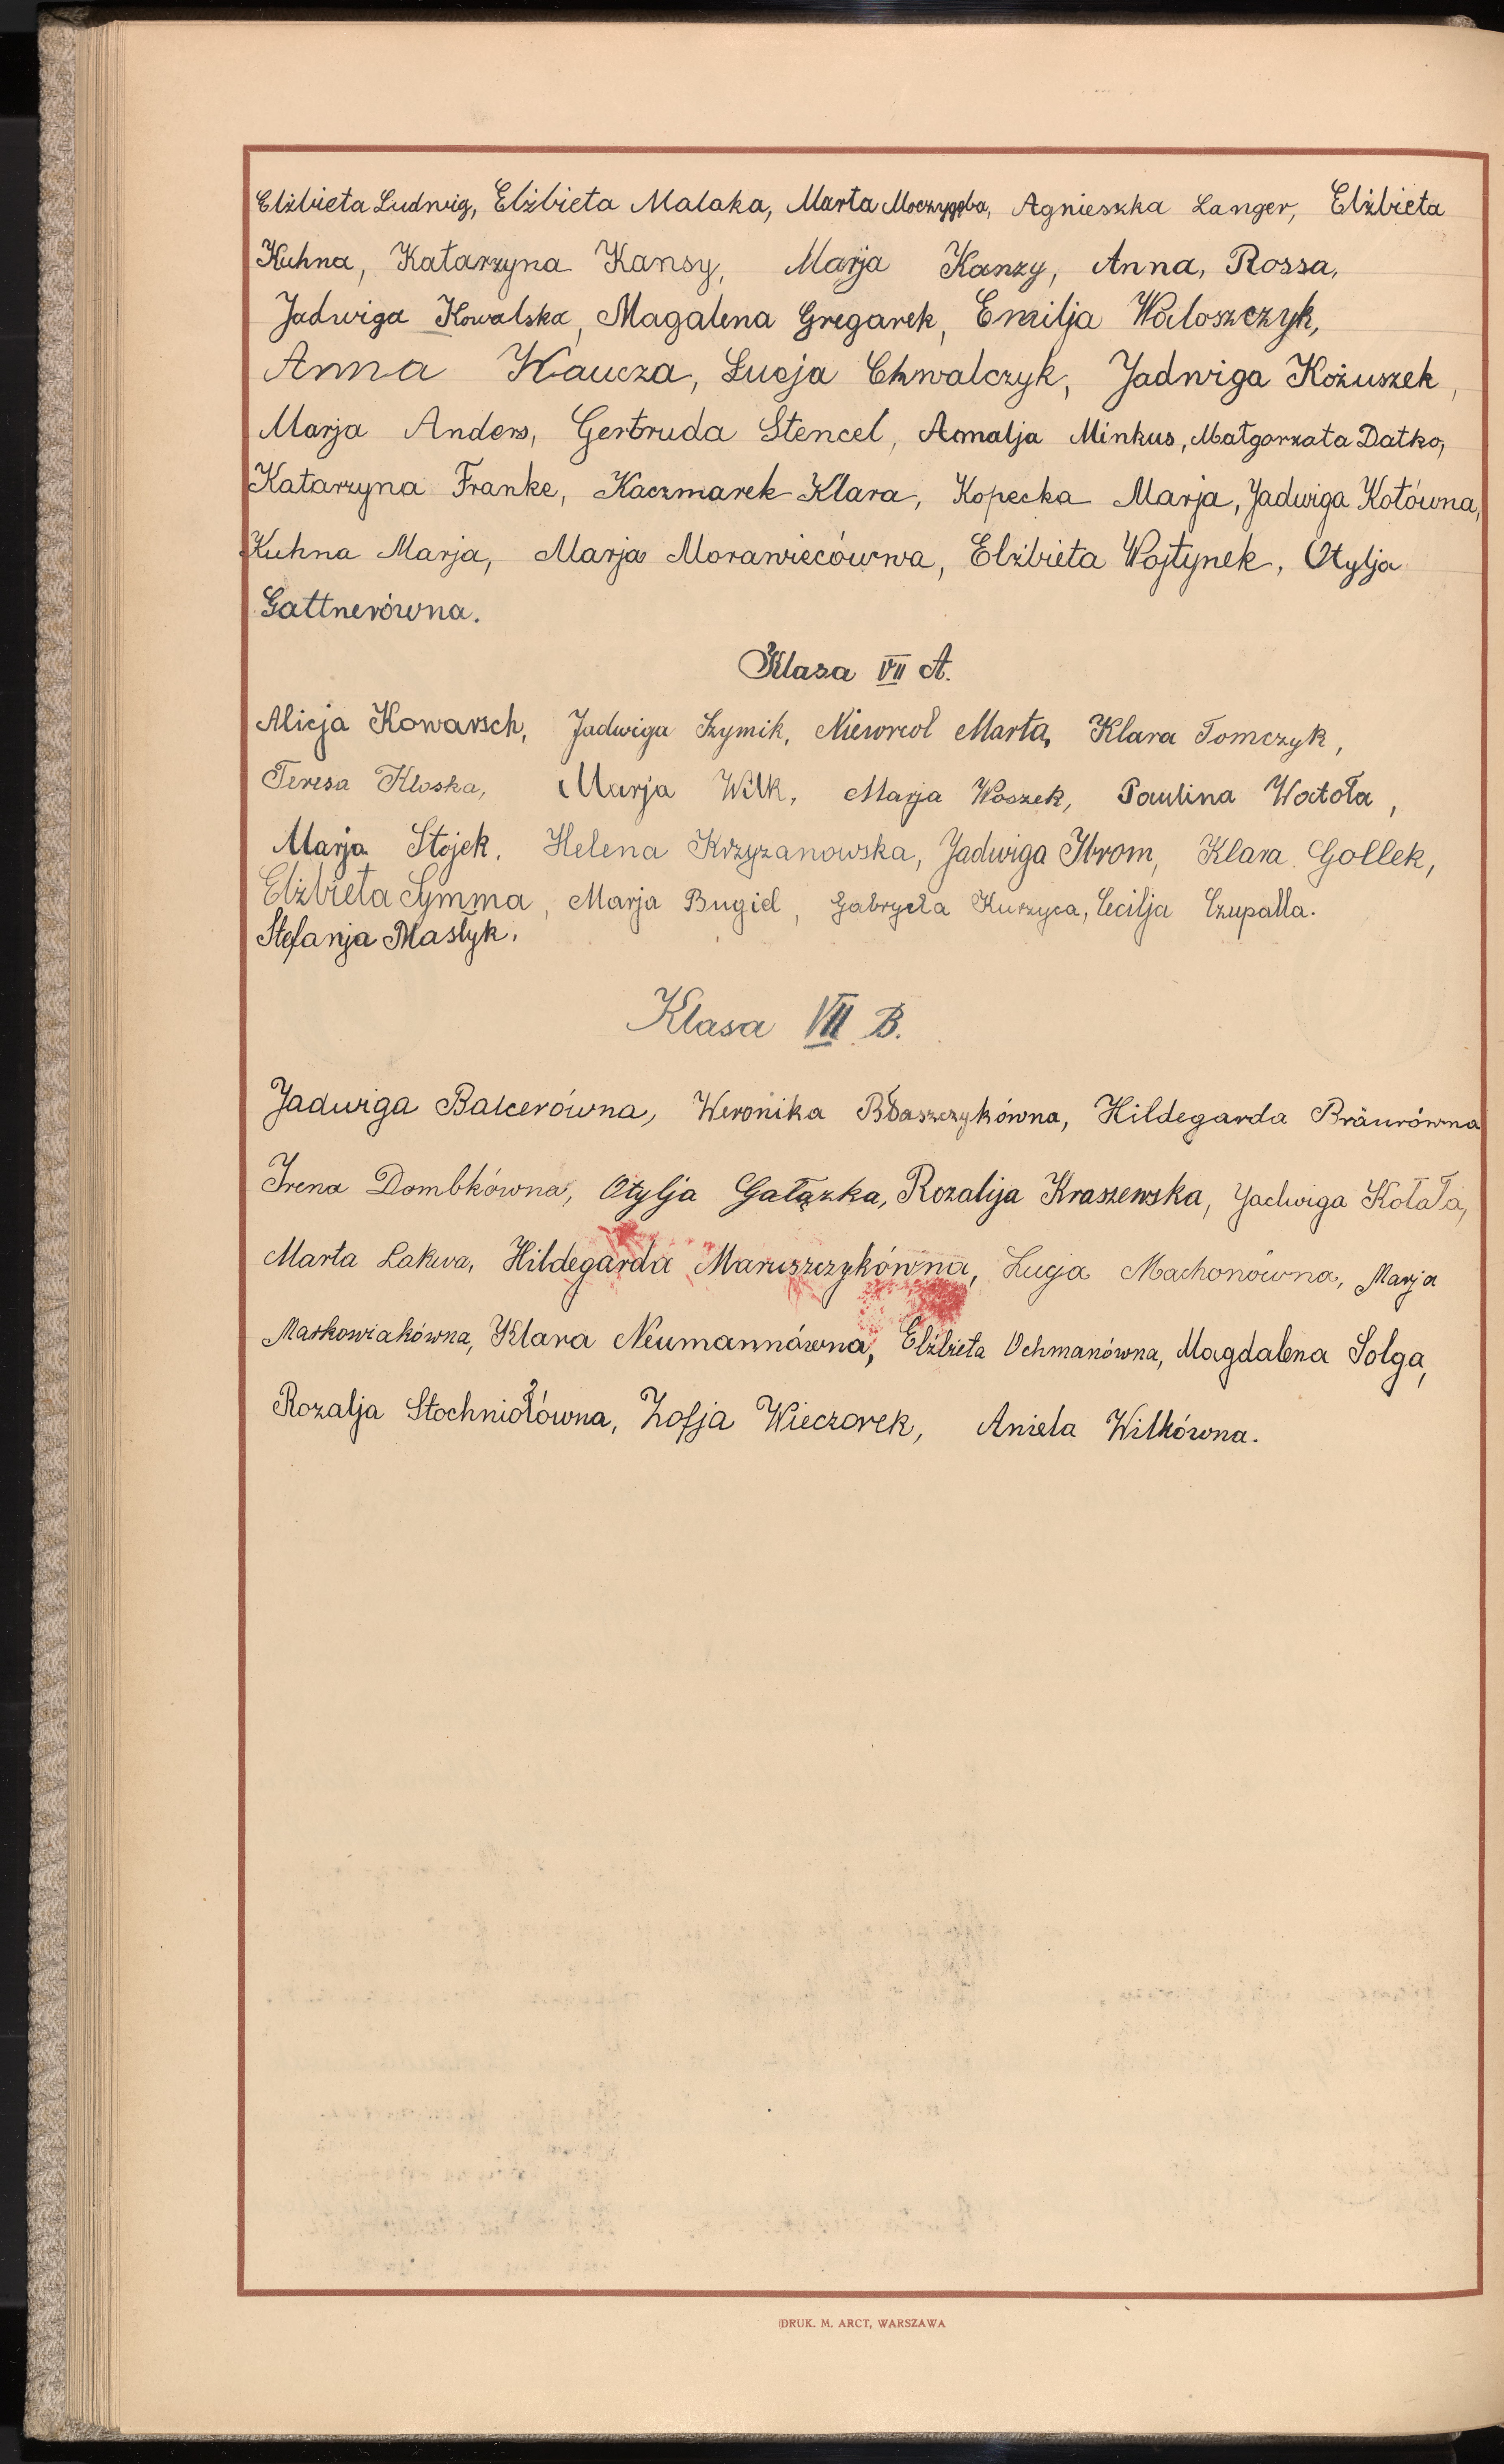 Elżbieta Ludwig, Elżbieta Malaka, Marta Moczygęba, Agnieszka Langer, Elżbieta
Kuhna, Katarzyna Kansy, Marja Kanzy, Anna, Rossa,
Jadwiga Kowalska, Magalena Gregarek, Emilja Waloszczyk,
Anna Kaucza, Łucja Chwalczyk, Jadwiga Kożuszek,
Marja Anders, Gertruda Stencel, Amalja Minkus, Małgorzata Datko,
Katarzyna Franke, Kaczmarek Klara, Kopecka Marja, Jadwiga Kotówna,
Kuhna Marja, Marja Morawiecówna, Elżbieta Wojtynek, Otylja
Gattnerówna.
Klasa VII A.
Alicja Kowarsch, Jadwiga Szymik, Niewreoł Marta, Klara Tomczyk,
Teresa Kloska, Marja Wilk, Marja Woszek, Paulina Watoła,
Marja Stojek, Helena Krzyzanowska, Jadwiga Ibrom, Klara Gollek,
Elżbieta Symma, Marja Bugiel, Gabryela Kurzyca, Cecilja Czupalla.
Stefanja Maślyk.
Klasa VII B.
Jadwiga Balcerówna, Weronika Błaszczykówna, Hildegarda Bräurówna
Irena Dombkówna, Otylja Gałązka, Rozalija Kraszewska, Jadwiga Kołała,
Marta Lakwa, Hildegarda Maruszczykówna, Łucja Machonówna, Marja
Markowiakówna, Klara Neumannówna, Elżbieta Ochmanówna, Magdalena Solga,
Rozalja Stochniołówna, Zofja Wieczorek, Aniela Wilkówna.
DRUK. M. ARCT, WARSZAWA